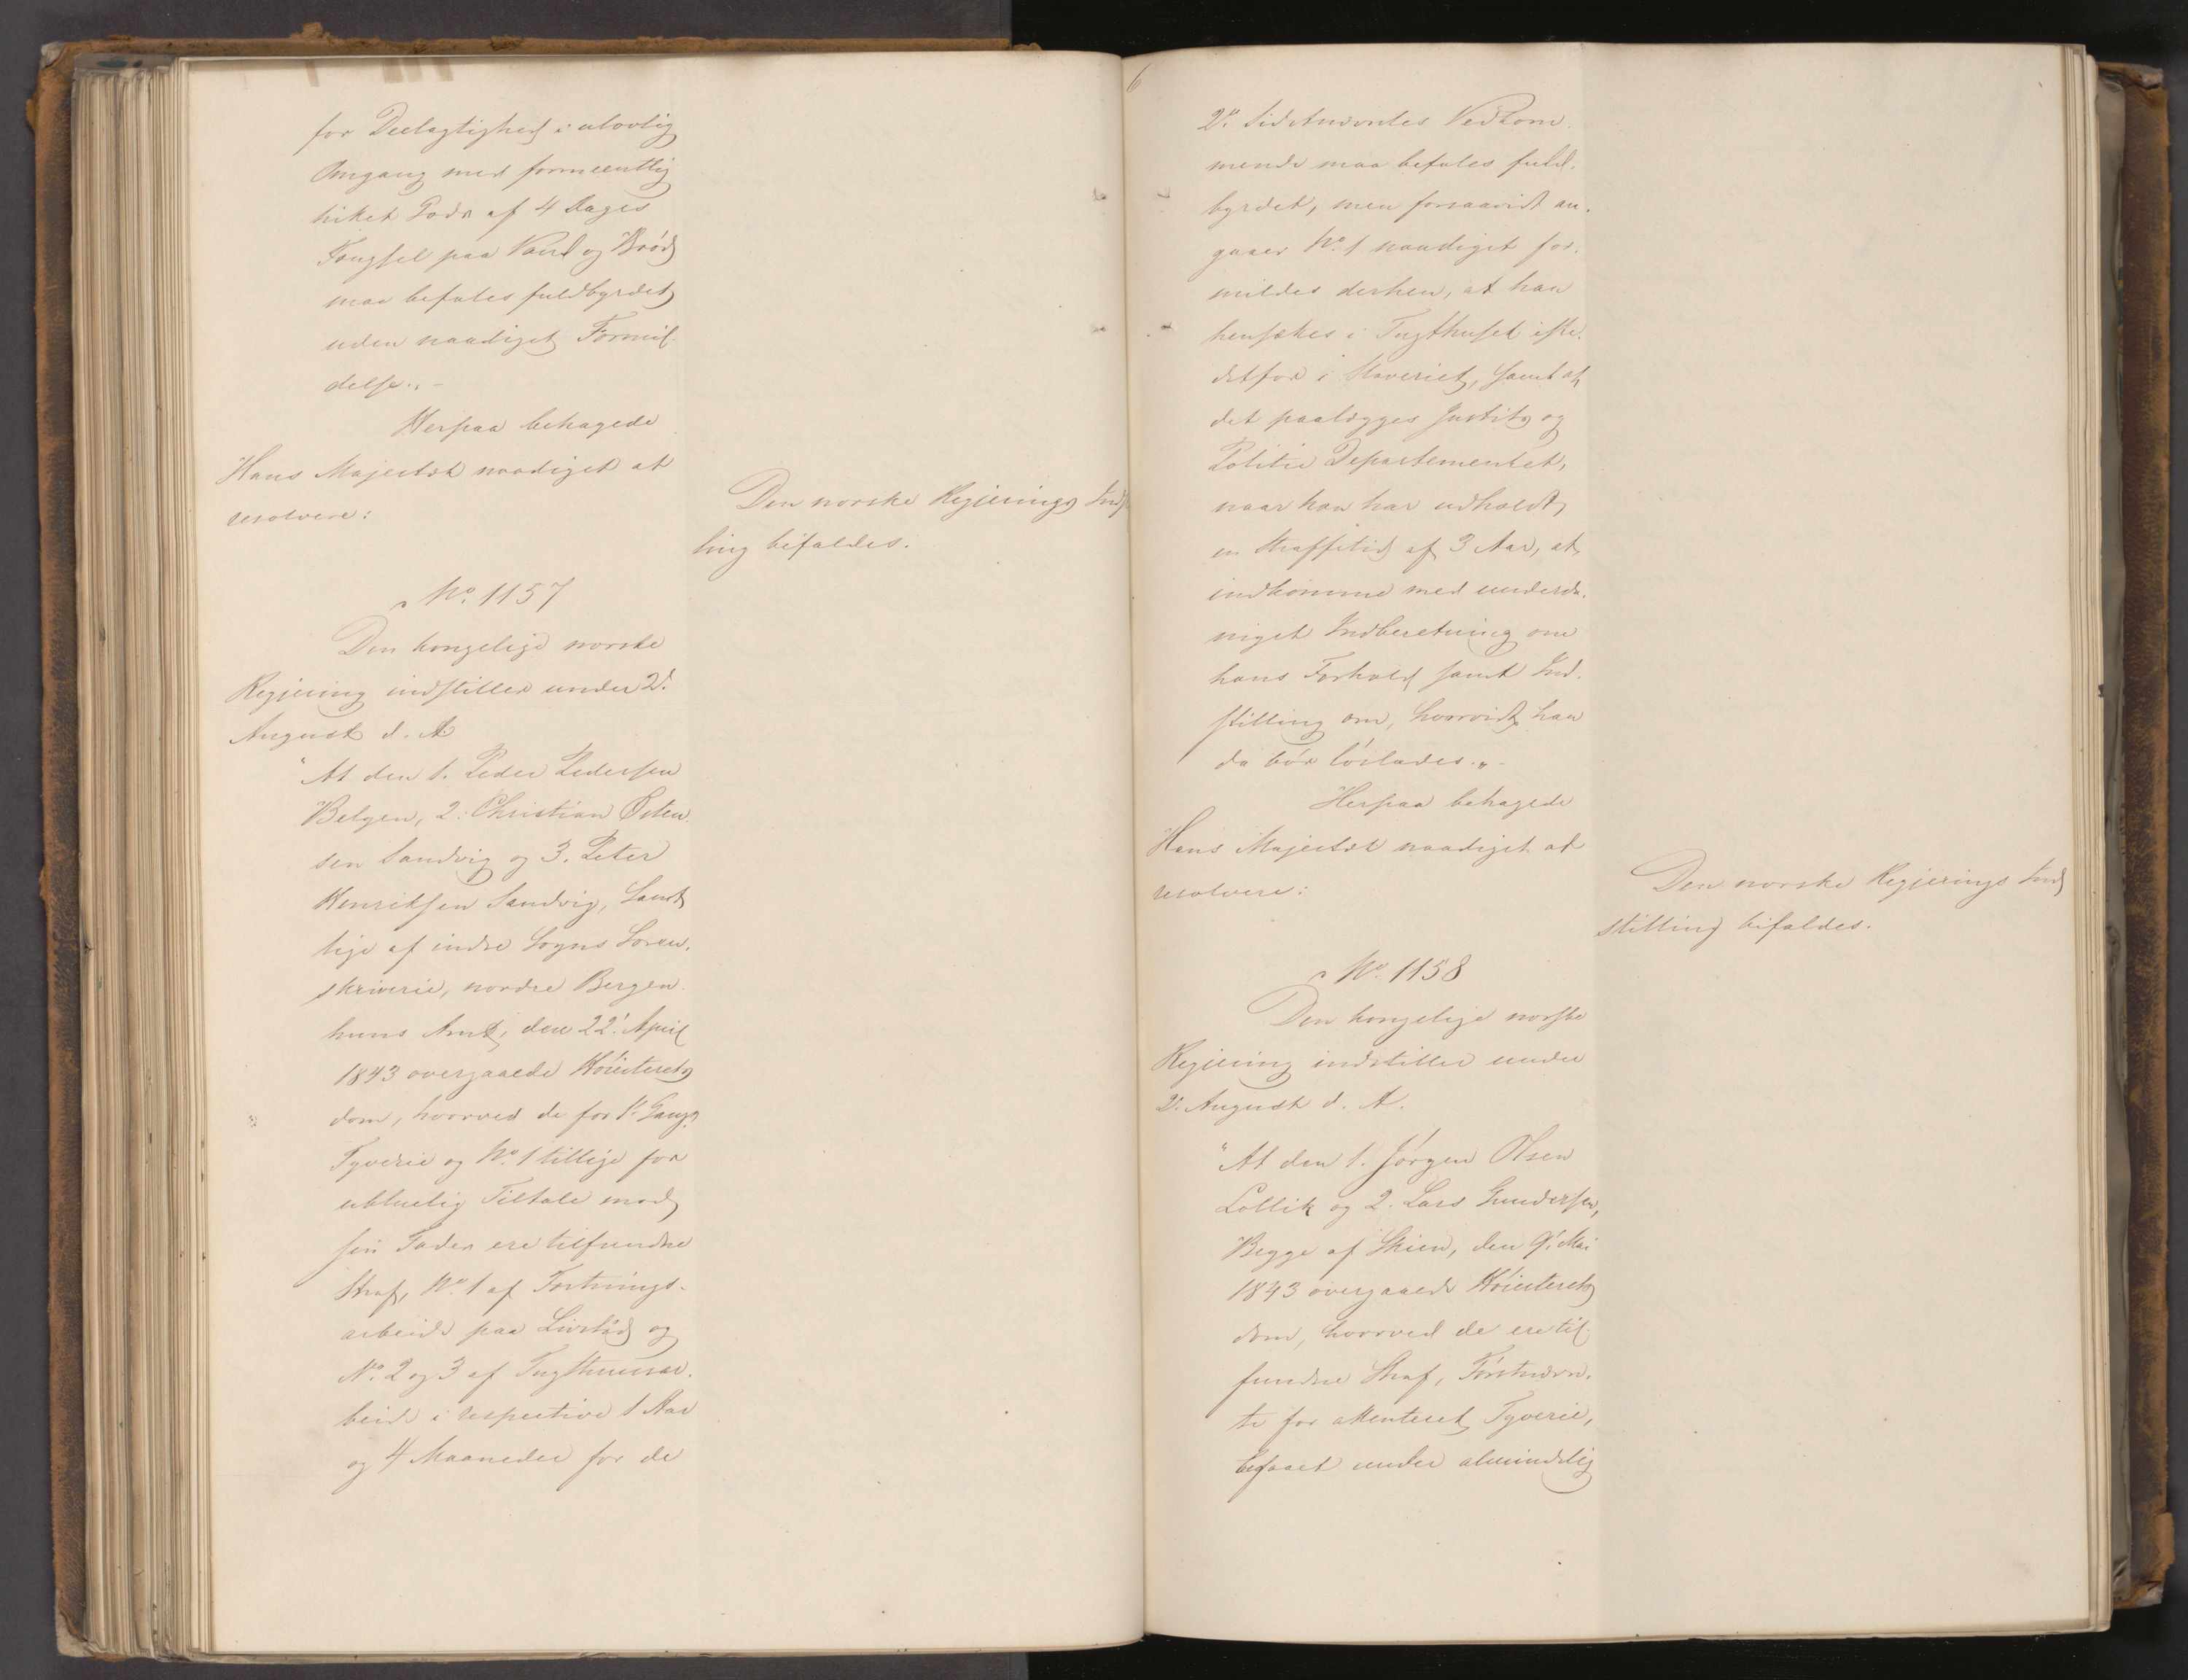 for Deelagtighed i ulovlig
Omgang med formeentlig
hiket Gods af 4 Dages
Fængsel paa Vand og Brød
maa befales fuldbyrdet
uden naadigst Formil-
delse." -
Herpaa behagede
Hans Majestæt naadigst at
resolvere:
Den norske Regjerings Ind
ling bifaldes.
No. 1157
Den kongelige norske
Regjering indstiller under 2d.
August d. A.
"At den 1. Peder Pedersen
Belgen, 2. Christian Østen-
sen Sandvig og 3. Peter
Henriksen Sandvig, Samt-
lige af indre Sogns Soren-
skriverie, nordre Bergen-
huus Amt, den 22d. April
1843 overgaaede Høiesterets
dom, hvorved de for 1ste Gangs
Tyverie og No. 1 tillige for
ublu­elig Tiltale mod
sin Fader ere tilfundne
Straf, No. 1 af Fæstnings-
arbeide paa Livstid og
No. 2 og 3 af Tugthuusar-
beide i respective 1 Aar
og 4 Maaneder for de
6
2de Sidstnævntes Vedkom-
mende maa befales fuld-
byrdet, men forsaavidt an-
gaaer No. 1 naadigst for-
mildes derhen, at han
hensættes i Tugthuset iste-
detfor i Slaveriet, samt at
det paalægges Justits og
Politie Departementet,
naar han har udholdt
en Straffetid af 3 Aar, at
indkomme med underda-
nigst Indberetning om
hans Forhold samt Ind-
stilling om, hvorvidt han
da bør løslades." -
Herpaa behagede
Hans Majestæt naadigst at
resolvere:
Den norske Regjerings Ind
stilling bifaldes.
No. 1158
Den kongelige norske
Regjering indstiller under
2d. August d. A.
"At den 1. Jørgen Olsen
Lollik og 2. Lars Gundersen,
Begge af Skien, den 9d. Mai
1843 overgaaede Høiesterets
dom, hvorved de ere til-
fundne Straf, Førstnævn-
te for attenteret Tyverie,
begaaet under almindelig